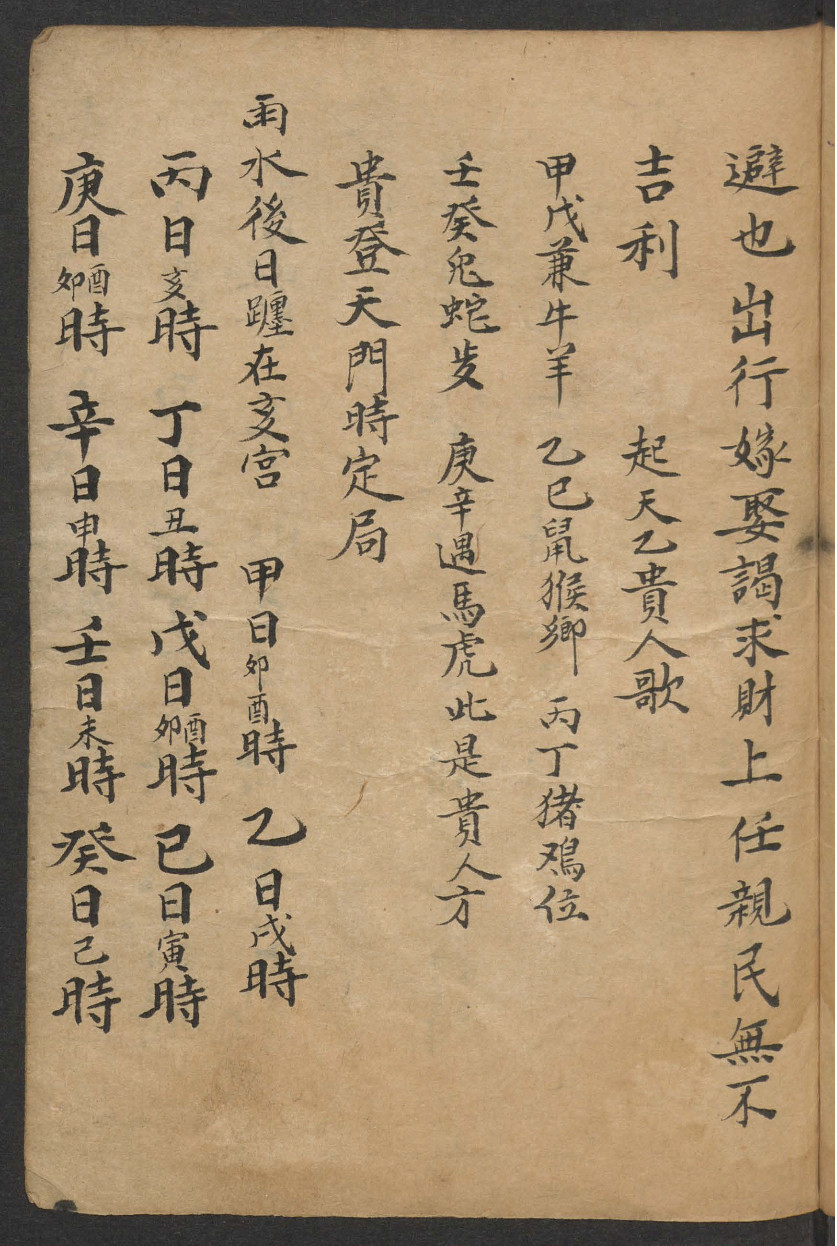 避也出行嫁娶謁求財上任親民無不
吉利　起天乙貴人歌
甲戊兼牛羊　乙巳鼠猴鄉　丙丁猪鸡位
壬癸兔蛇发　庚辛遇馬虎此是貴人方
貴登天門時定局
雨水後日躔在亥宮　甲日卯酉時　乙日戌時
丙日亥時　丁日丑時　戊日卯酉時　巳日寅時
庚日卯酉時　辛日申時　壬日未時　癸日己時